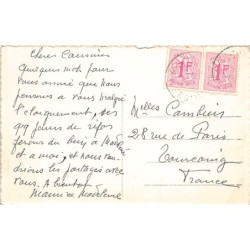 Chères Cousines
Quelques mots pour
vous avertir que nous
pensons à vous malgré
l'éloignement, ces
qq jours de repos
feront du bien à
et à moi, et nous
les partager avec
vous. A bientôt
Maurice Madeleine
1F
1F
Melles Cambiers
28 rue de Paris
Tourcoing
France